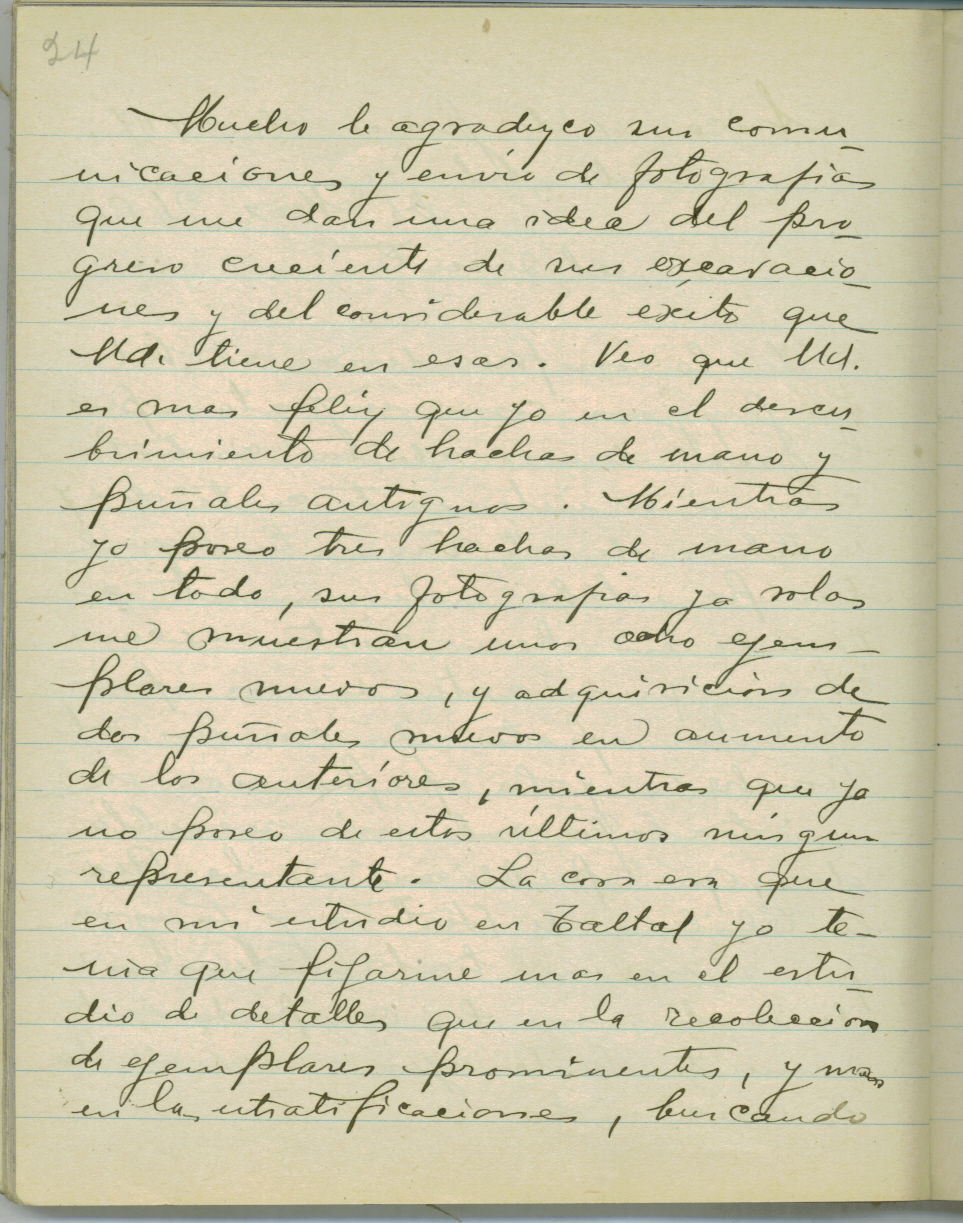 24
Mucho le agradezco sus comu_
nicaciones y envio de fotografias
que me dan una idea del pro_
greso creciente de sus excavacio_
nes y del considerable exito que
Ud. tiene en esas. Veo que Ud.
es mas feliz que yo en el descu_
brimiento de hachas de mano y
puñales antiguos. Mientras
yo poseo tres hachas de mano
en todo, sus fotografias ya solas
me muestran unos ocho ejem-
plares nuevos, y adquisicion de
dos puñales nuevos en aumento
de los anteriores, mientras que yo
no poseo de estos últimos ningun
representante. La cosa era que
en mi estudio en Taltal yo te-
nia que fijarme mas en el estu_
dio de detalles que en la recoleccion
de ejemplares prominentes, y mas
en las stratificaciones, buscando